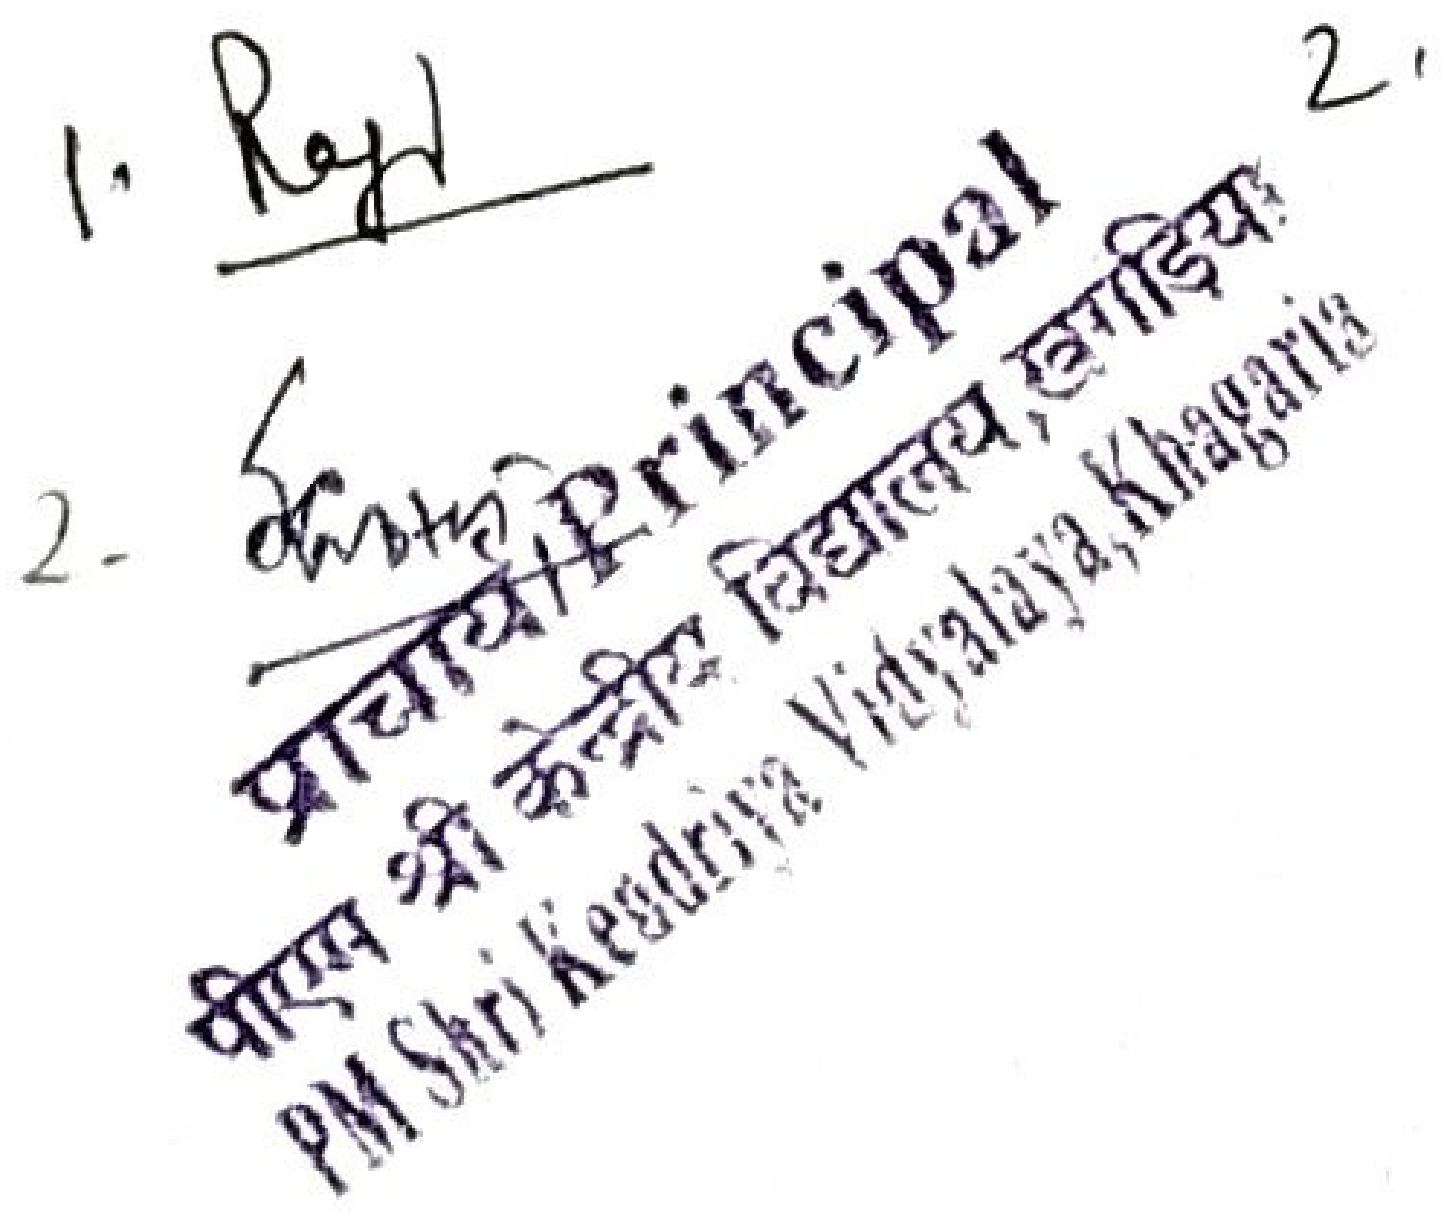 1.
2.
2-
प्राचार्य/Principal
पीएम श्री केन्द्रीय विद्यालय, खगड़िया
PM Shri Kendriya Vidyalaya, Khagaria